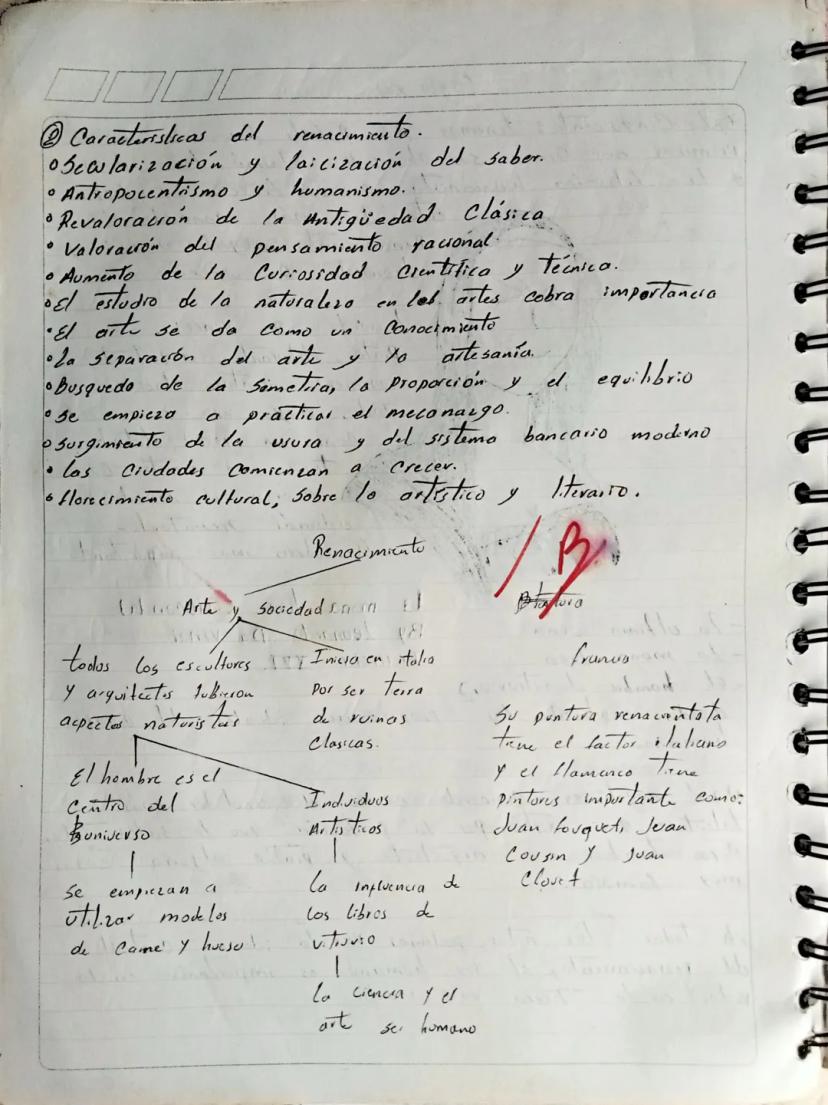 ② Características del renacimiento.
• Secularización y laicización del saber.
• Antropocentrismo y humanismo.
• Revaloración de la Antigüedad Clásica
• Valoración del pensamiento racional
• Aumento de la Curiosidad Científica y Técnica.
• El estudio de la naturaleza en las artes cobra importancia
• El arte se da como un conocimiento
• La separación del arte y la artesanía.
• Busqueda de la Simetría, la proporción y el equilibrio
• Se empieza a practicar el mecenazgo.
• Surgimiento de la usura y del sistema bancario moderno
• Las Ciudades Comienzan a Crecer.
• florecimiento cultural, Sobre lo artístico y literario.
Renacimiento
B
Arte y Sociedad
todos los escultores
y arquitectos tubieron
aspectos naturistas
El hombre es el
Centro del
universo
Se empiezan a
utilizar modelos
de carne y hueso
Inicia en italia
por ser terra
de ruinas
Clasicas.
Individuos
Artisticos
La influencia de
los libros de
vitruvio
La ciencia y el
arte ser humano
Su pintura renacintista
tiene el factor italiano
y el flamenco tiene
pintores importante como:
Juan fouquet, Juan
Cousin y Juan
Clouet